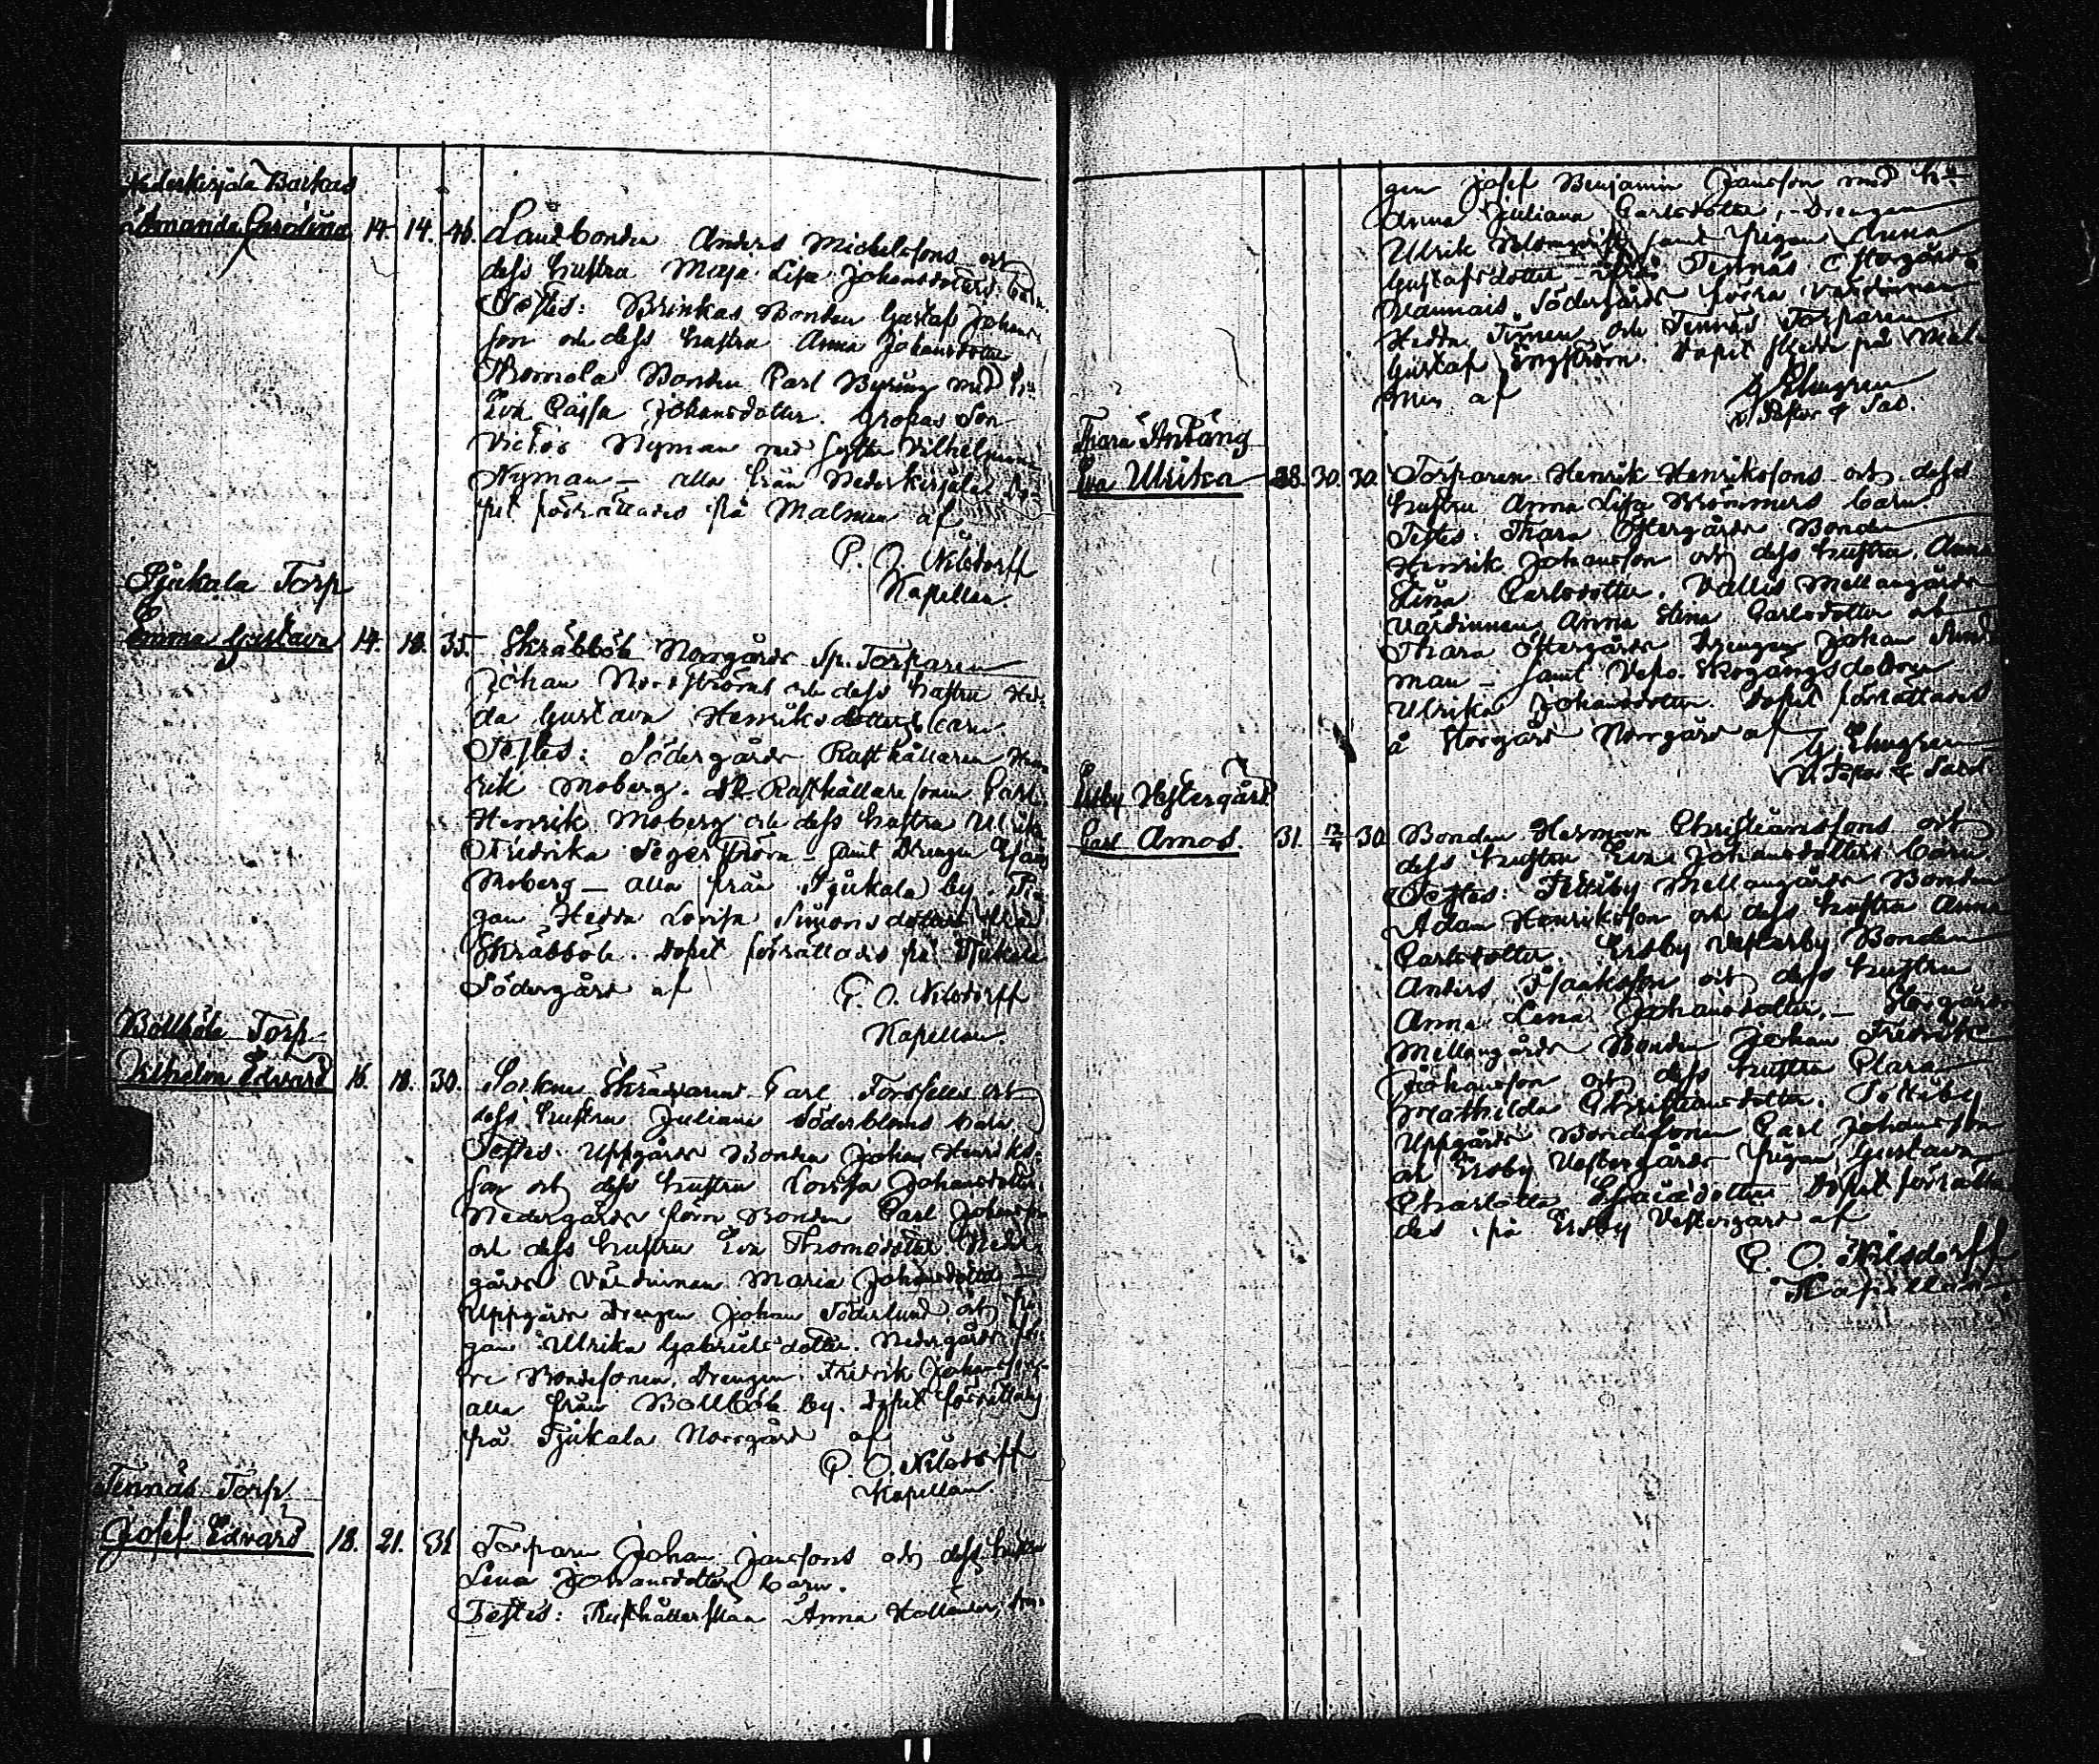 Nederkirjala Backas
Amanda Carolina 14. 14. 46. Landbonden Anders Michelssons och
dess hustru Maja Lisa Johansdotters barn.
Testes: Brinkas Bonden Gustaf Johans-
son och dess hustru Anna Johansdotter
Bonden Carl Byring med h:u
Eva Cajsa Johansdotter. Gropas Son
Victor Nyman med Vilhelmina
Nyman – alla från Nederkirjala. Do-
pet förrättades på Malmen af
P. O. Nilsdorff
Kapellan.
Tjukala Torp
Emma Gustava 14. 18. 35. Skräbböle Norrgårds Sp. Torparen
Johan Nordströms och dess hustru Hed-
da Gustava Henriksdotters barn.
Testes: Södergårds Rusthållaren Hen-
rik Moberg. Rusthållaresonen Carl
Henrik Moberg och dess hustru Ulrika
Fredrika Segerström – samt Drengen Esaias
Moberg – alla från Tjukala by. Pi-
gan Hedda Lovisa Simonsdotter från
Skräbböle. Dopet förrättades på Tjukala
Södergård af P. O. Nilsdorff
Kapellan.
Bollböle Torp
Vilhelm Edvard 16. 18. 30. Socken Skräddaren Carl Forssells och
dess hustru Juliana Söderbloms barn
Testes: Uppgårds Bonden Johan Henriks-
son och dess hustru Lovisa Johansdotter.
Nedergårds förra Bonden Carl Johansson
och dess hustru Eva Thomasdotter. Neder-
gårds Värdinnan Maria Johansdotter –
Uppgårds Drengen Johan Söderlund och Pi-
gan Ulrika Gabrielsdotter. Nedergårds för-
re Bondesonen, Drengen Fredrik Johansson –
alla från Bollböle by. Dopet förrättades
på Tjukala Norrgård af
P. O. Nilsdorff
Kapellan
Tennäs Torp
Josef Edvard 18. 21. 31 Torparen Johan Janssons och dess hustru
Lena Johansdotters barn.
Testes: Rusthållerskan Anna Hollander,
gen Josef Benjamin Jansson med h:u
Anna Juliana Carlsdotter, – Drengen
Ulrik samt Pigan Anna
Gustafsdotter Tennäs
Vannais Södergårds förra värdinnan
Hedda Simen och Tennäs Torparen
Gustaf Engström. Dopet skedde på Mal-
men af G Elmgren
v. Pastor & Sac.
Thara Antäng
Eva Ulrika 28. 30. 30. Torparen Henrik Henrikssons och dess
hustru Anna Lisa Brommers barn.
Testes: Thara Östergårds Bonden
Henrik Johansson och dess hustru Anna
Stina Carlsdotter. Vallis Mellangårds
värdinnan Anna Stina Carlsdotter och
Thara Östergårds Drengen Johan Sund-
man – samt
Ulrika Johansdotter. Dopet förrättades
å Storgård Norrgård af G. Elmgren
v. Pastor & Sacell.
Ersby Vestergård
Carl Amos. 31. 12/4 30. Bonden Herman Christianssons och
dess hustru Eva Johansdotters barn.
Testes: Mellangårds Bonden
Adam Henriksson och dess hustru Anna
Carlsdotter. Ersby Vesterby Bonden
Anders Isaksson och dess hustru
Anna Lena Johansdotter, – Storgårds
Mellangårds Bonden Johan Fredrik
Johansson och dess hustru Clara
Mathilda Christiansdotter.
Uppgårds Bondesonen Carl Johansson
och Ersby Vestergårds Pigan Gustava
Charlotta Esaiædotter Dopet förrätta-
des på Ersby Vestergård af
P. O. Nilsdorff
Kapellan.